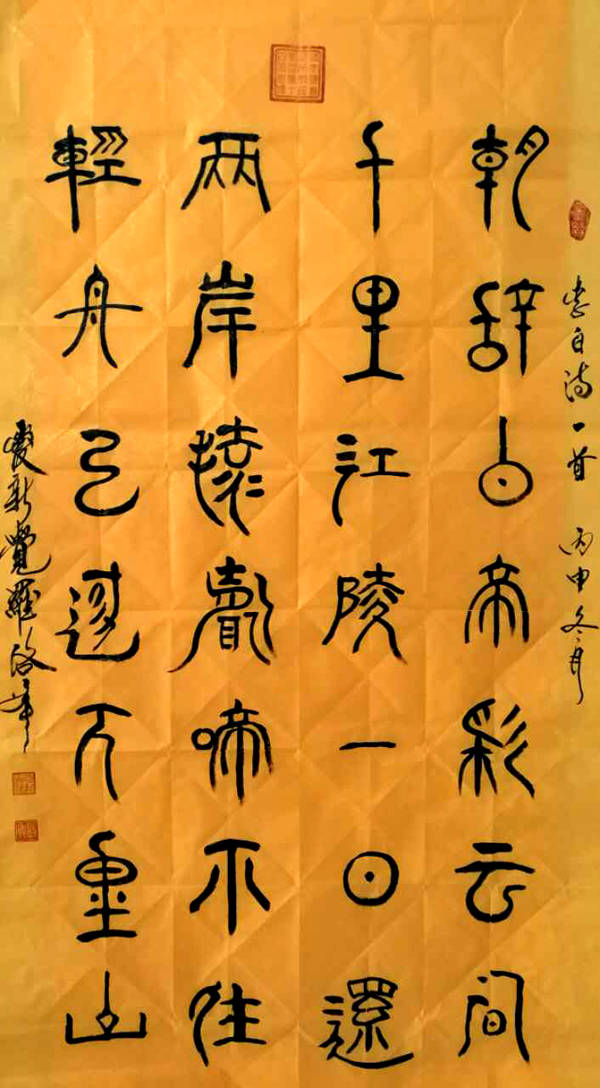 李白诗一首 丙申冬月
朝辞白帝彩云间
千里江陵一日還
两岸猿聲啼不住
輕舟已過万重山
愛新覺羅啟